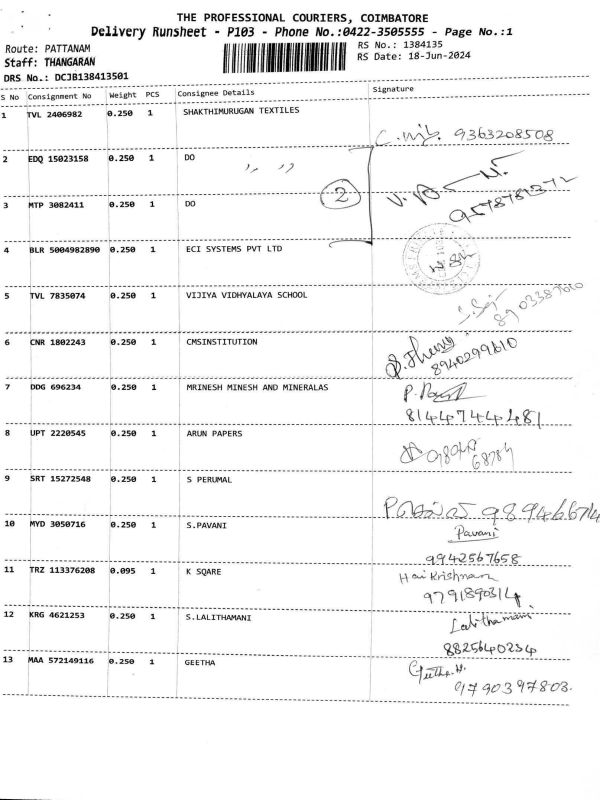 THE PROFESSIONAL COURIERS, COIMBATORE
Delivery Runsheet - P103 - Phone No.:0422-3505555 - Page No.:1
Route: PATTANAM
RS No.: 1384135
Staff: THANGARAN
RS Date: 18-Jun-2024
DRS No.: DCJB138413501
S No Consignment No Weight PCS Consignee Details Signature
1 TVL 2406982 0.250 1 SHAKTHIMURUGAN TEXTILES
9363208508
2 EDQ 15023158 0.250 1 DO
2
3 MTP 3082411 0.250 1 DO
4 BLR 5004982890 0.250 1 ECI SYSTEMS PVT LTD
5 TVL 7835074 0.250 1 VIJIYA VIDHYALAYA SCHOOL
6 CNR 1802243 0.250 1 CMSINSTITUTION
8940299610
7 DDG 696234 0.250 1 MRINESH MINESH AND MINERALAS
8144744481
8 UPT 2220545 0.250 1 ARUN PAPERS
9 SRT 15272548 0.250 1 S PERUMAL
10 MYD 3050716 0.250 1 S.PAVANI
Pavani
9942567658
11 TRZ 113376208 0.095 1 K SQARE
Hari Krishnan
9791890314
12 KRG 4621253 0.250 1 S.LALITHAMANI
Lalithamani
8825640234
13 MAA 572149116 0.250 1 GEETHA
Geetha.H.
9790397803.